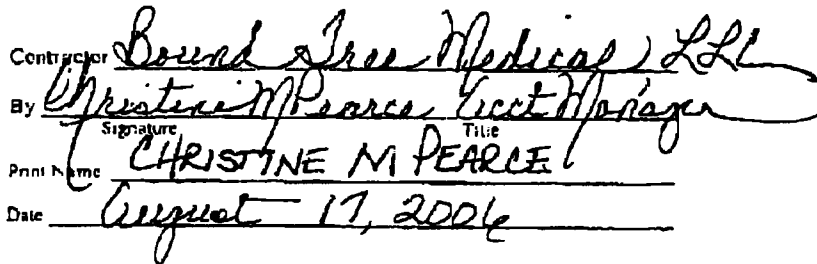 Contractor Bound Tree Medical, LLC
By Christine M Pearce Acct Manager
Signature Title
Print Name CHRISTINE M PEARCE
Date August 17, 2006